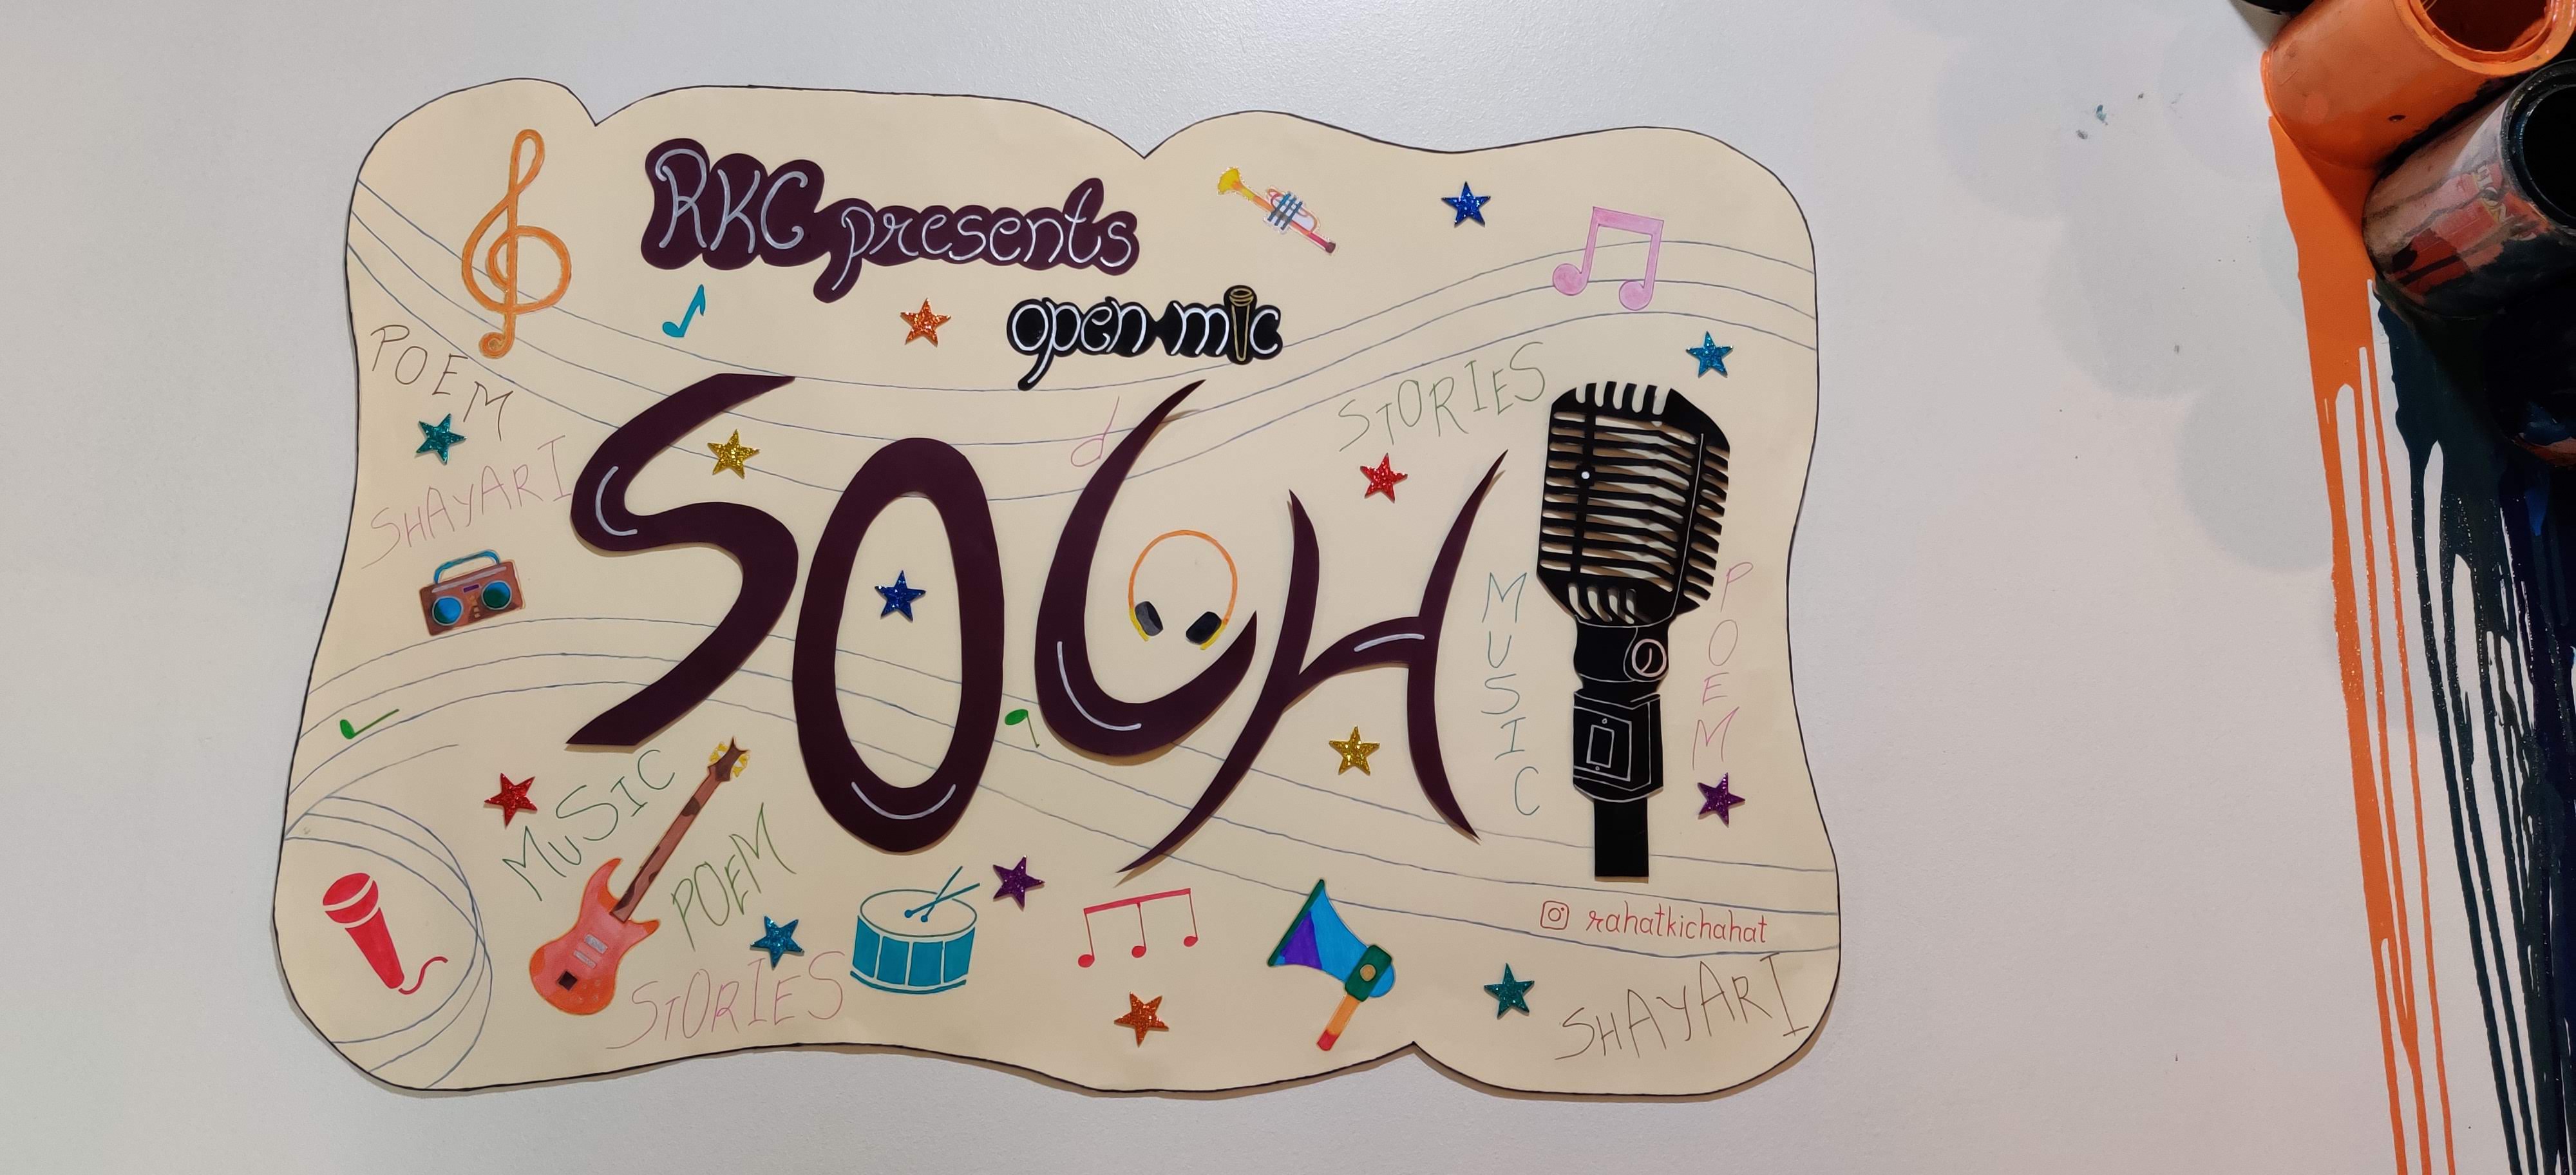 RKC presents
open mic
POEM
STORIES
SHAYARI
SOCH
MUSIC
POEM
MUSIC
POEM
STORIES
rahatkichahat
SHAYARI